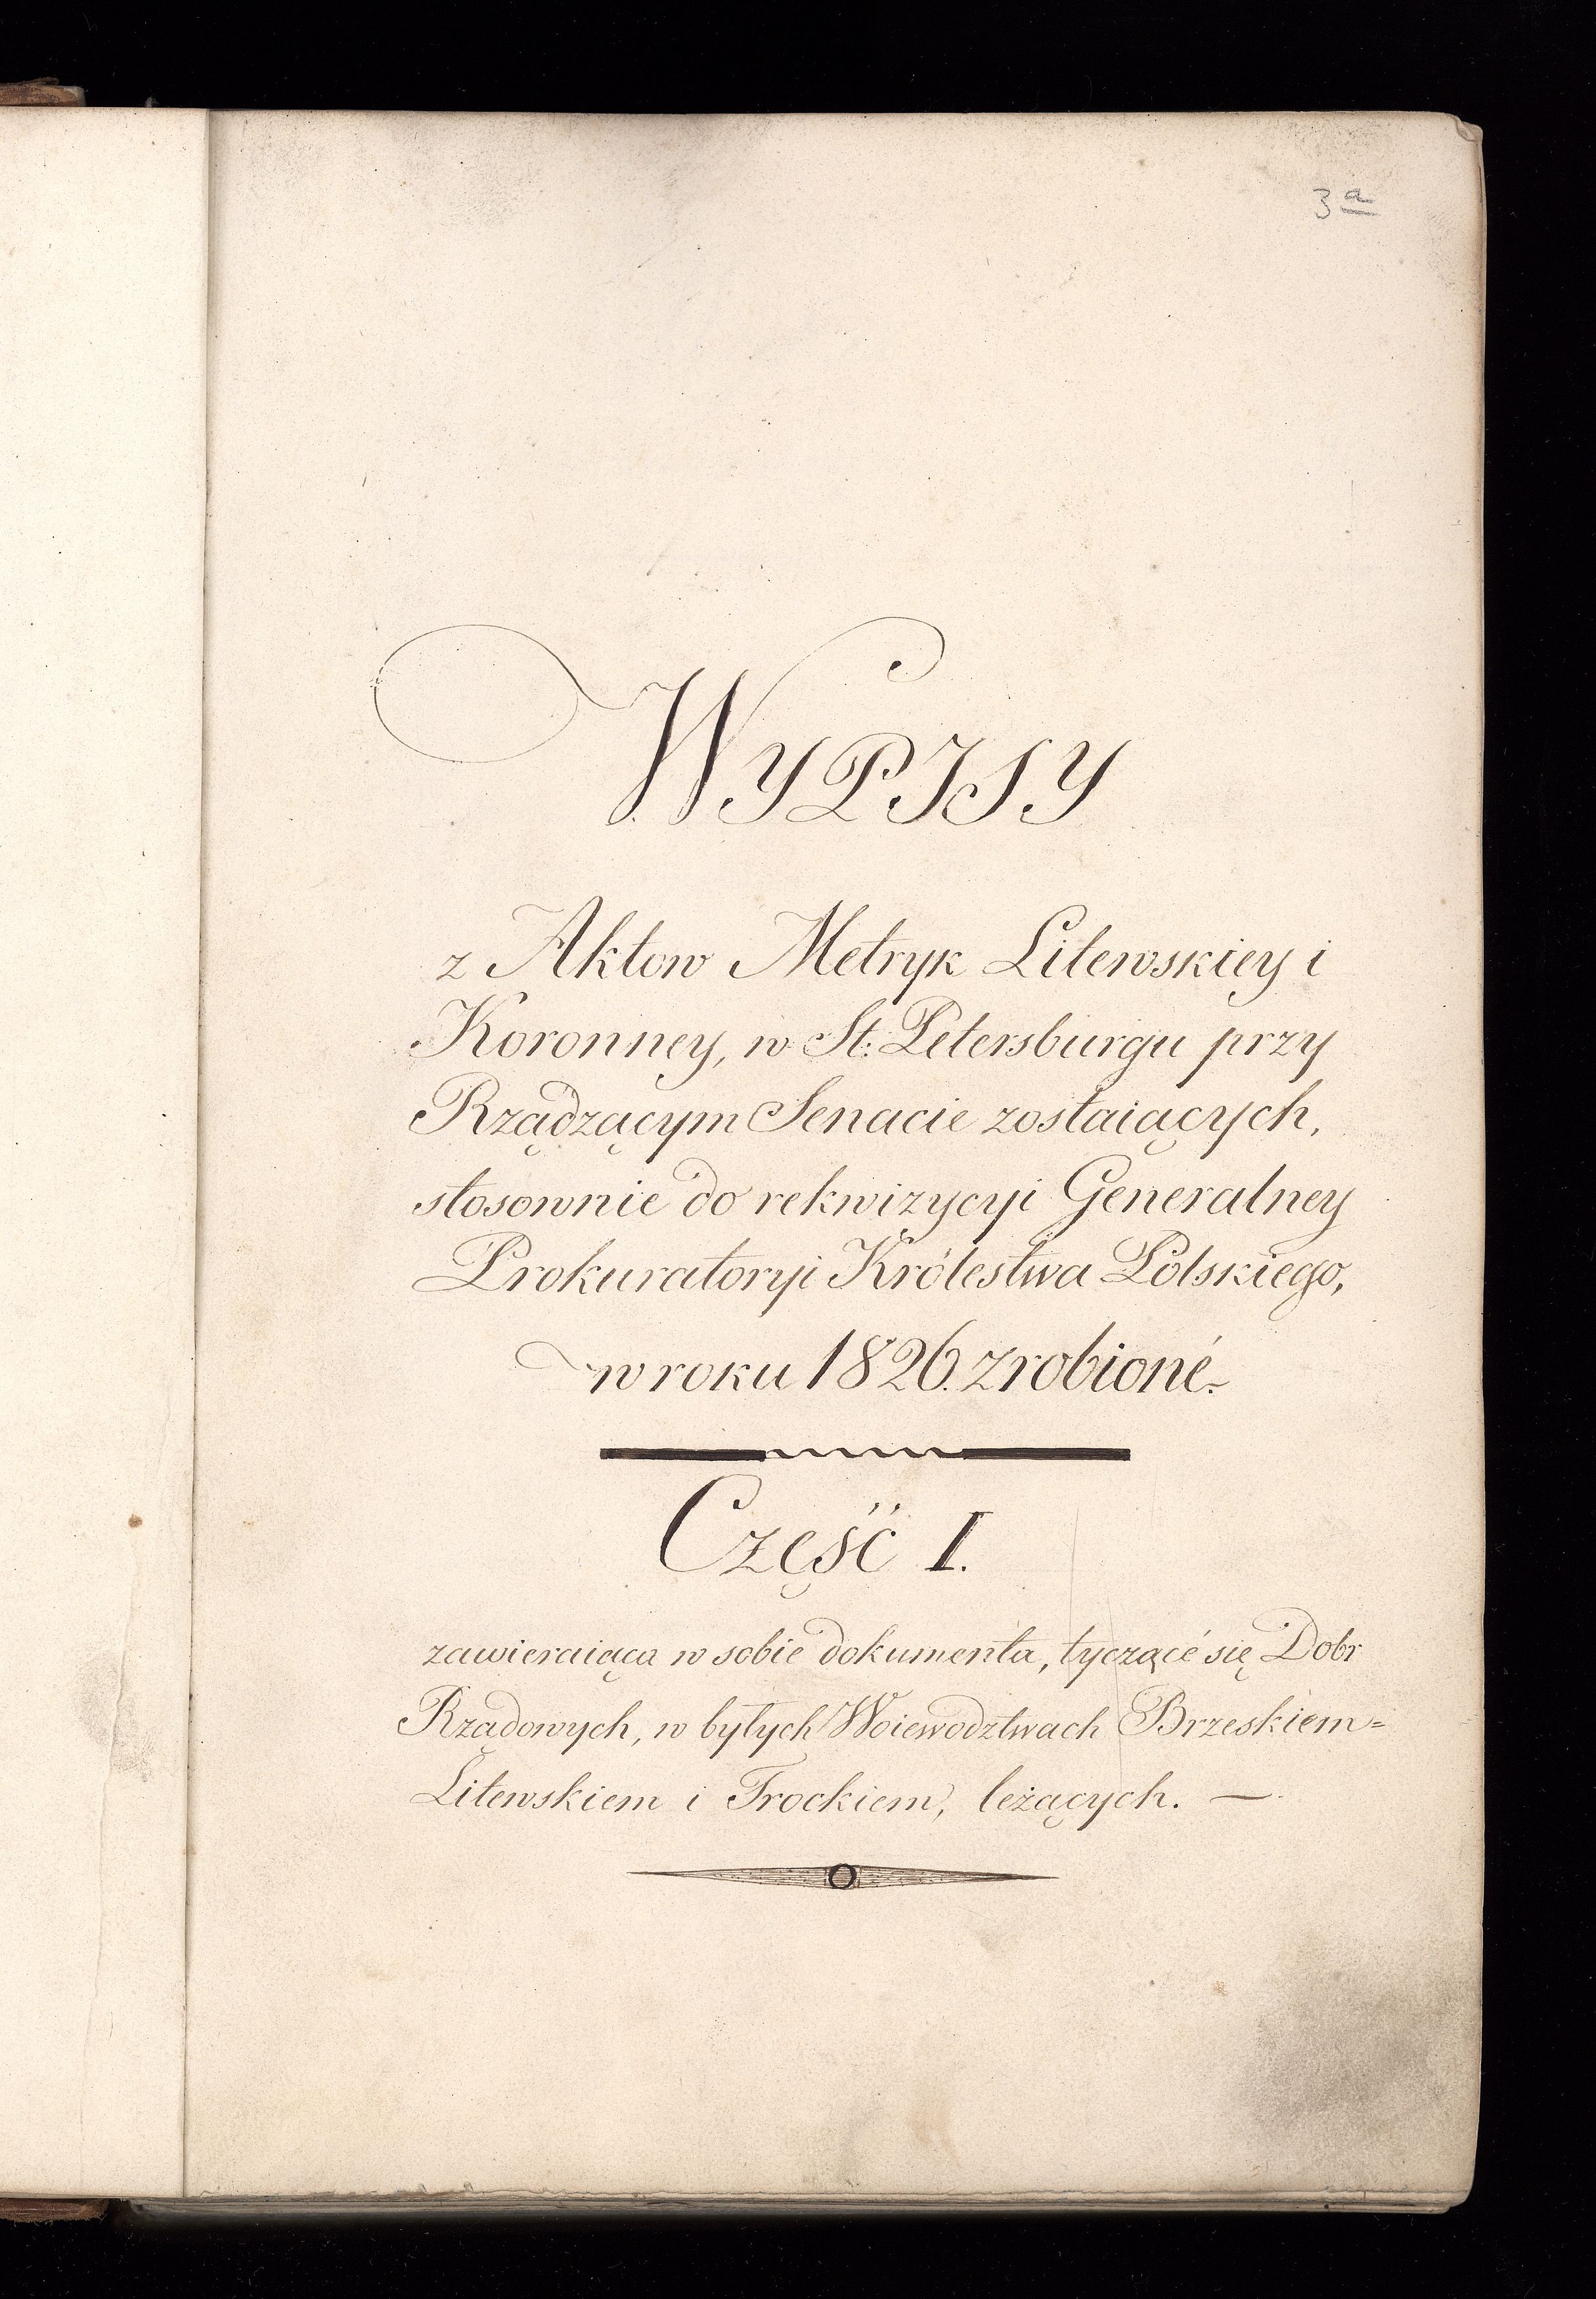 3a
WYPISY
z Aktow Metryk Litewskiey i
Koronney, w St. Petersburgu przy
Rządzącym Senacie zostaiących,
stosownie do rekwizycyi Generalney
Prokuratoryi Królestwa Polskiego,
w roku 1826. zrobioné.
Część I.
zawieraiąca w sobie dokumenta, tyczącé się Dobr
Rządowych, w byłych Woiewodztwach Brzeskiem=
Litewskiem i Trockiem, leżących. —